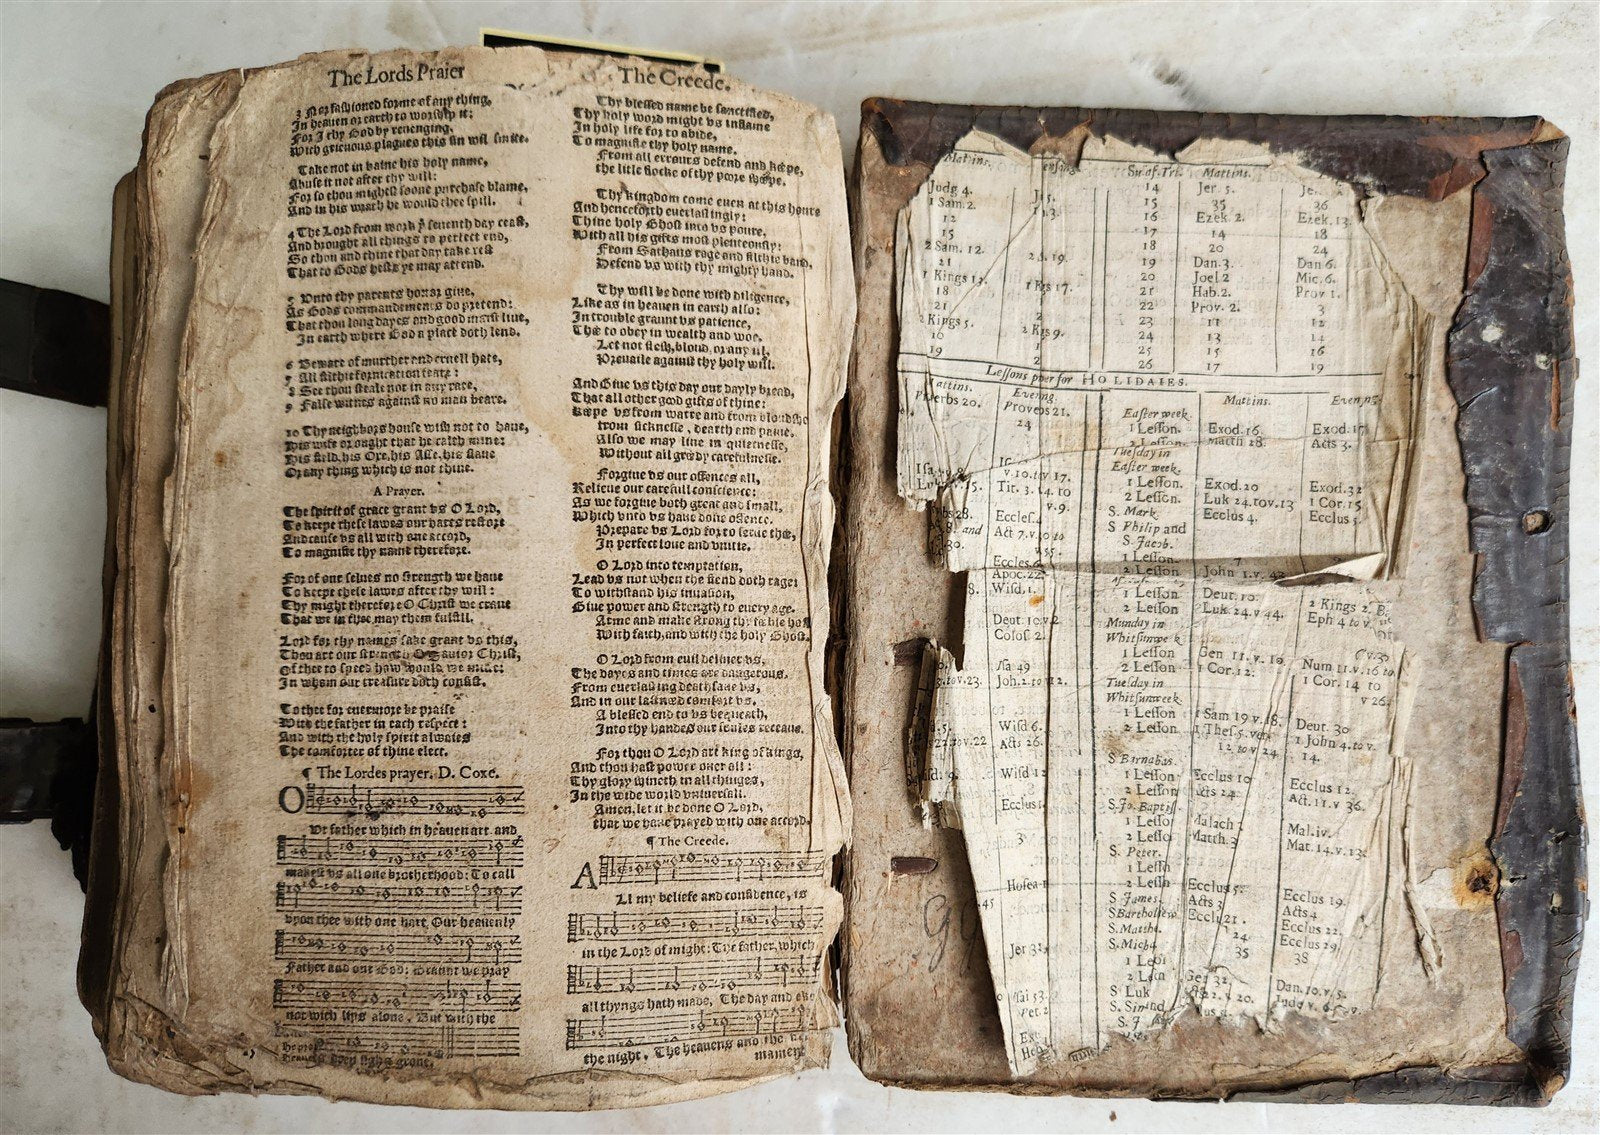 The Lords Praier
3 Nor fashioned forme of any thing,
In heauen or earth to worship it:
For I thy God by reuenging,
With grieuous plagues this sin wil smite.
Take not in vaine his holy name,
Abuse it not after thy will:
For so thou mightst soone purchase blame,
And in his wrath he would thee spill.
4 The Lord from work yͤ seuenth day ceast,
And brought all things to perfect end,
So thou and thine that day take rest
That to Gods hests ye may attend.
5 Vnto thy parents honor giue,
As Gods commandements do pretend:
That thou long dayes and good maist liue,
In earth where God a place doth lend.
6 Beware of murther and cruell hate,
7 All filthie fornication feare:
8 See thou steale not in any rate,
9 False witnes against no man beare.
10 Thy neighbors house wish not to haue,
His wife or ought that he calth mine:
His field, his Oxe, his Asse, his slaue
Or any thing which is not thine.
A Prayer.
The spirit of grace grant vs O Lord,
To keepe these lawes our harts restore
And cause vs all with one accord,
To magnifie thy name therefore.
For of our selues no strength we haue
To keepe these lawes after thy will:
Thy might therefore O Christ we craue
That we in thee may them fulfill.
Lord for thy names sake grant vs this,
Thou art our strength O Sauior Christ,
Of thee to speed how should we misse:
In whom our treasure doth consist.
To thee for euermore be praise
With the father in each respect:
And with the holy spirit alwaies
The comforter of thine elect.
¶ The Lordes prayer. D. Coxe.
O
Vr father which in heauen art, and
makest vs all one brotherhood: To call
vpon thee with one hart, Our heauenly
Father and our God: Graunt we pray
not with lips alone, But with the
harts deep sighs grone.
The Creede.
Thy blessed name be sanctified,
Thy holy word might vs inflame
In holy life for to abide,
To magnifie thy holy name.
From all errours defend and kéepe,
the little flocke of thy poore shéepe.
Thy kingdom come euen at this houre
And henceforth euerlastingly:
Thine holy Ghost into vs poure,
With all his gifts most plenteously:
From Sathans rage and filthie band,
Defend vs with thy mighty hand.
Thy will be done with diligence,
Like as in heauen in earth also:
In trouble graunt vs patience,
Thée to obey in wealth and woe.
Let not flesh, bloud, or any ill,
Preuaile against thy holy will.
And Giue vs this day our dayly bread,
That all other good gifts of thine:
Kéepe vs from warre and from bloudshe
from sicknesse, dearth and paine.
Also we may liue in quietnesse,
Without all gréedy carefulnesse.
Forgiue vs our offences all,
Relieue our carefull conscience:
As we forgiue both great and small,
Which vnto vs haue done offence.
Prepare vs Lord for to serue thée,
In perfect loue and vnitie.
O Lord into temptation,
Lead vs not when the fiend doth rage:
To withstand his inuasion,
Giue power and strength to euery age.
Arme and make strong thy féeble host
With faith, and with the holy Ghost.
O Lord from euil deliuer vs,
The dayes and times are dangerous,
From euerlasting death saue vs,
And in our last need comfort vs,
A blessed end to vs bequeath,
Into thy handes our soules receaue.
For thou O Lord art king of kings,
And thou hast power ouer all:
Thy glory shineth in all thinges,
In the wide world vniuersall.
Amen, let it be done O Lord,
that we haue prayed with one accord.
¶ The Creede.
A
Ll my beliefe and confidence, is
in the Lord of might: The father, which
all thyngs hath made, The day and eke
the night. The heauens and the
mament
Mattins. Su. of. Tri. Mattins.
Judg 4. 14 Jer. 5.
1 Sam. 2. 15 35 36
12 16 Ezek. 2. Ezek. 13.
15 17 14 18
2 Sam. 12. 18 20 24
21 2 S. 19. 19 Dan. 3. Dan 6.
1 Kings 13. 20 Joel 2 Mic. 6.
18 1 Kgs 17. 21 Hab. 2. Prov 1.
21 22 Prov. 2. 3
2 Kings 5. 2 Kgs 9. 23 11 12
24 13 14
19 25 15 16
26 17 19
Lessons proper for HOLIDAIES.
Mattins. Evening. Mattins.
20. Proverbs 21. Easter week.
24 1 Lesson. Exod. 16. Exod. 17
2 Lesson. Matth 28. Acts 3.
Tuesday in
v. 10. to v 17. Easter week.
Tit. 3. v.4. to 1 Lesson. Exod. 20 Exod. 32
v. 9. 2 Lesson. Luk 24. to v. 13 1 Cor. 15
28. Eccles. 4 S. Mark. Ecclus 4. Ecclus 5.
and Act 7. v. 30 to S Philip and
30. v. 55. S. Jacob.
Eccles. 6 1 Lesson 7
Apoc. 22. 2 Lesson John 1. v. 43
8. Wisd. 1. 1 Lesson Deut. 10. 2 Kings 2.
2 Lesson Luk 24. v. 44. Eph 4 to v.
Deut. 10. v. 2 Munday in
Colos. 2. Whitsunweek
1 Lesson Gen 11. v. 10 Num 11. v. 16 to
Isa 49 2 Lesson 1 Cor. 12. 1 Cor. 14 to
to v. 23. Joh. 2. to v 12. Tuesday in v 26.
Whitsunweek
5. Wisd 6. 1 Lesson 1 Sam 19 v. 18. Deut. 30
v. 22 Acts 26. 2 Lesson 1 Thes. 5. ver. 1 John 4. to v.
12 to v 24 14.
S Barnabas.
9. Wisd 12 1 Lesson Ecclus 10 Ecclus 12.
2 Lesson Acts 14. Act. 11. v 36.
Ecclus 1. S. Jo. Baptist.
1 Lesso Malach 3 Mal. iv.
3 2 Lesso Matth. 3 Mat. 14. v. 13.
S. Peter.
1 Lessn
Hosea 1 2 Lessn Ecclus 5. Ecclus 19.
45 S James. Acts 3 Acts 4
S Bartholomew Ecclus 21. Ecclus 22.
S. Matthew 24. Ecclus 29.
Jer 31. S. Mich 35 38
1 Les
2 Lesn Gen 32. Dan. 10. v. 5.
Isai 53. S Luk
Pet. 2 S. Sim